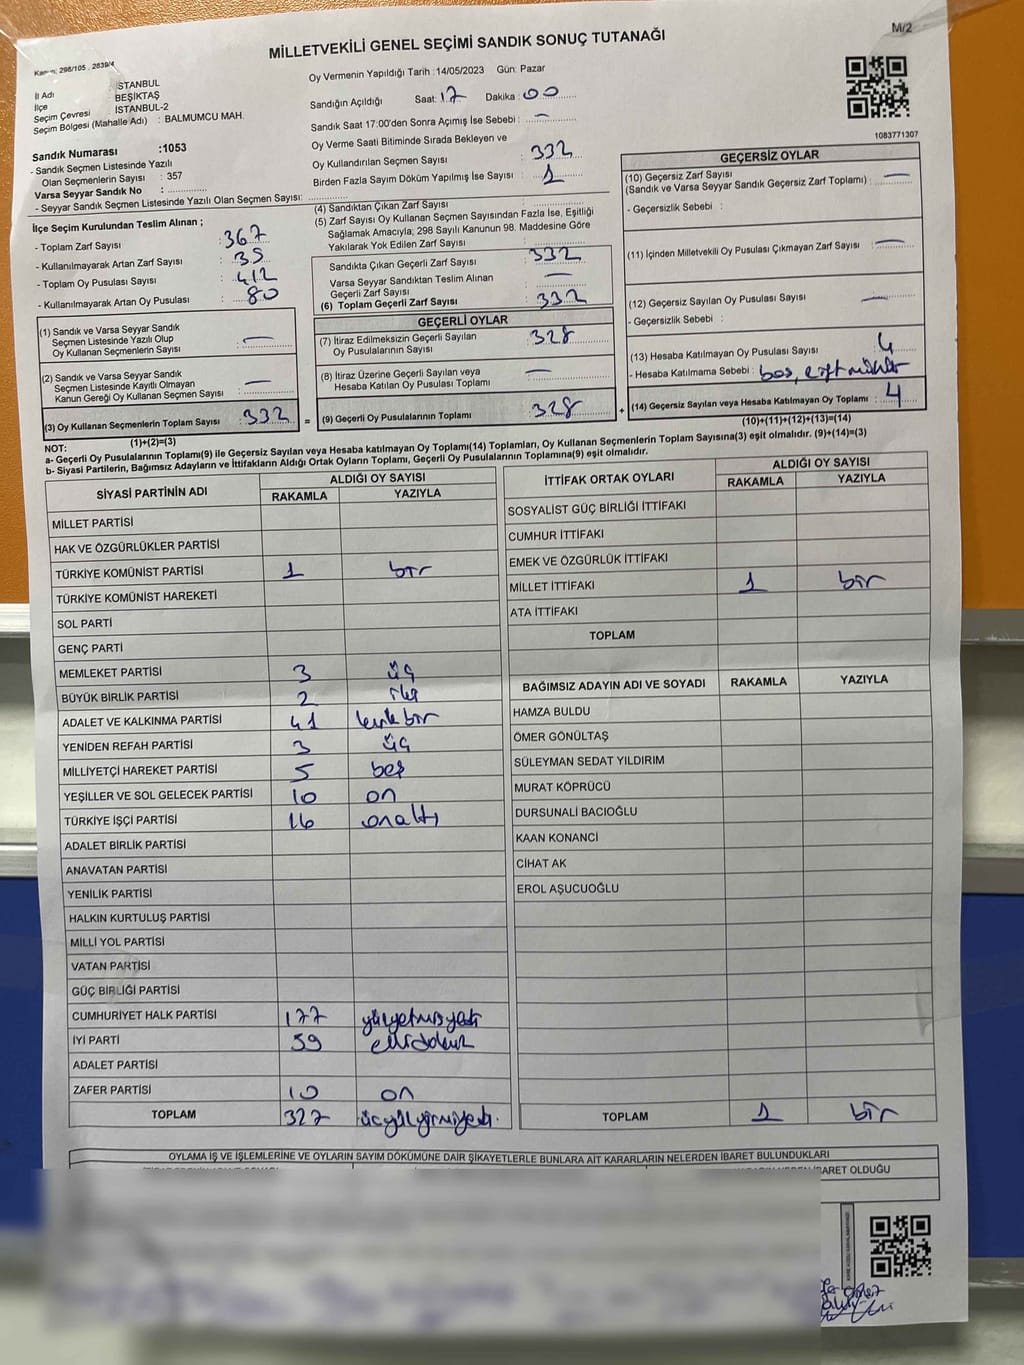 MİLLETVEKİLİ GENEL SEÇİMİ SANDIK SONUÇ TUTANAĞI
M/2
Kanun: 298/105 , 2839/4
İl Adı : İSTANBUL
İlçe BEŞİKTAŞ
Seçim Çevresi İSTANBUL-2
Seçim Bölgesi (Mahalle Adı) : BALMUMCU MAH.
Sandık Numarası :1053
- Sandık Seçmen Listesinde Yazılı
Olan Seçmenlerin Sayısı : 357
Varsa Seyyar Sandık No :
- Seyyar Sandık Seçmen Listesinde Yazılı Olan Seçmen Sayısı:
Oy Vermenin Yapıldığı Tarih :14/05/2023 Gün: Pazar
Sandığın Açıldığı Saat: 17 Dakika : 00
Sandık Saat 17:00'den Sonra Açımış İse Sebebi : —
Oy Verme Saati Bitiminde Sırada Bekleyen ve
Oy Kullandırılan Seçmen Sayısı : 332
Birden Fazla Sayım Döküm Yapılmış İse Sayısı : 1
1083771307
İlçe Seçim Kurulundan Teslim Alınan ;
- Toplam Zarf Sayısı : 367
- Kullanılmayarak Artan Zarf Sayısı : 35
- Toplam Oy Pusulası Sayısı : 412
- Kullanılmayarak Artan Oy Pusulası : 80
(1) Sandık ve Varsa Seyyar Sandık
Seçmen Listesinde Yazılı Olup
Oy Kullanan Seçmenlerin Sayısı : —
(2) Sandık ve Varsa Seyyar Sandık
Seçmen Listesinde Kayıtlı Olmayan
Kanun Gereği Oy Kullanan Seçmen Sayısı : —
(3) Oy Kullanan Seçmenlerin Toplam Sayısı : 332 =
(1)+(2)=(3)
(4) Sandıktan Çıkan Zarf Sayısı :
(5) Zarf Sayısı Oy Kullanan Seçmen Sayısından Fazla İse, Eşitliği
Sağlamak Amacıyla; 298 Sayılı Kanunun 98. Maddesine Göre
Yakılarak Yok Edilen Zarf Sayısı :
Sandıkta Çıkan Geçerli Zarf Sayısı : 332
Varsa Seyyar Sandıktan Teslim Alınan
Geçerli Zarf Sayısı : —
(6) Toplam Geçerli Zarf Sayısı : 332
GEÇERLİ OYLAR
(7) İtiraz Edilmeksizin Geçerli Sayılan
Oy Pusulalarının Sayısı : 328
(8) İtiraz Üzerine Geçerli Sayılan veya
Hesaba Katılan Oy Pusulası Toplamı : —
(9) Geçerli Oy Pusulalarının Toplamı : 328 +
GEÇERSİZ OYLAR
(10) Geçersiz Zarf Sayısı
(Sandık ve Varsa Seyyar Sandık Geçersiz Zarf Toplamı) : —
- Geçersizlik Sebebi :
(11) İçinden Milletvekili Oy Pusulası Çıkmayan Zarf Sayısı : —
(12) Geçersiz Sayılan Oy Pusulası Sayısı : —
- Geçersizlik Sebebi :
(13) Hesaba Katılmayan Oy Pusulası Sayısı : 4
- Hesaba Katılmama Sebebi : boş, çift mühür
(14) Geçersiz Sayılan veya Hesaba Katılmayan Oy Toplamı : 4
(10)+(11)+(12)+(13)=(14)
NOT:
a- Geçerli Oy Pusulalarının Toplamı(9) ile Geçersiz Sayılan veya Hesaba Katılmayan Oy Toplamı(14) Toplamları, Oy Kullanan Seçmenlerin Toplam Sayısına(3) eşit olmalıdır. (9)+(14)=(3)
b- Siyasi Partilerin, Bağımsız Adayların ve İttifakların Aldığı Ortak Oyların Toplamı, Geçerli Oy Pusulalarının Toplamına(9) eşit olmalıdır.
SİYASİ PARTİNİN ADI ALDIĞI OY SAYISI
RAKAMLA YAZIYLA
MİLLET PARTİSİ
HAK VE ÖZGÜRLÜKLER PARTİSİ
TÜRKİYE KOMÜNİST PARTİSİ 1 bir
TÜRKİYE KOMÜNİST HAREKETİ
SOL PARTİ
GENÇ PARTİ
MEMLEKET PARTİSİ 3 üç
BÜYÜK BİRLİK PARTİSİ 2 iki
ADALET VE KALKINMA PARTİSİ 41 kırk bir
YENİDEN REFAH PARTİSİ 3 üç
MİLLİYETÇİ HAREKET PARTİSİ 5 beş
YEŞİLLER VE SOL GELECEK PARTİSİ 10 on
TÜRKİYE İŞÇİ PARTİSİ 16 onaltı
ADALET BİRLİK PARTİSİ
ANAVATAN PARTİSİ
YENİLİK PARTİSİ
HALKIN KURTULUŞ PARTİSİ
MİLLİ YOL PARTİSİ
VATAN PARTİSİ
GÜÇ BİRLİĞİ PARTİSİ
CUMHURİYET HALK PARTİSİ 177 yüzyetmişyedi
İYİ PARTİ 59 ellidokuz
ADALET PARTİSİ
ZAFER PARTİSİ 10 on
TOPLAM 327 üçyüzyirmiyedi
İTTİFAK ORTAK OYLARI ALDIĞI OY SAYISI
RAKAMLA YAZIYLA
SOSYALİST GÜÇ BİRLİĞİ İTTİFAKI
CUMHUR İTTİFAKI
EMEK VE ÖZGÜRLÜK İTTİFAKI
MİLLET İTTİFAKI 1 bir
ATA İTTİFAKI
TOPLAM
BAĞIMSIZ ADAYIN ADI VE SOYADI RAKAMLA YAZIYLA
HAMZA BULDU
ÖMER GÖNÜLTAŞ
SÜLEYMAN SEDAT YILDIRIM
MURAT KÖPRÜCÜ
DURSUNALİ BACIOĞLU
KAAN KONANCİ
CİHAT AK
EROL AŞUCUOĞLU
TOPLAM 1 bir
OYLAMA İŞ VE İŞLEMLERİNE VE OYLARIN SAYIM DÖKÜMÜNE DAİR ŞİKAYETLERLE BUNLARA AİT KARARLARIN NELERDEN İBARET BULUNDUKLARI
İBARET OLDUĞU